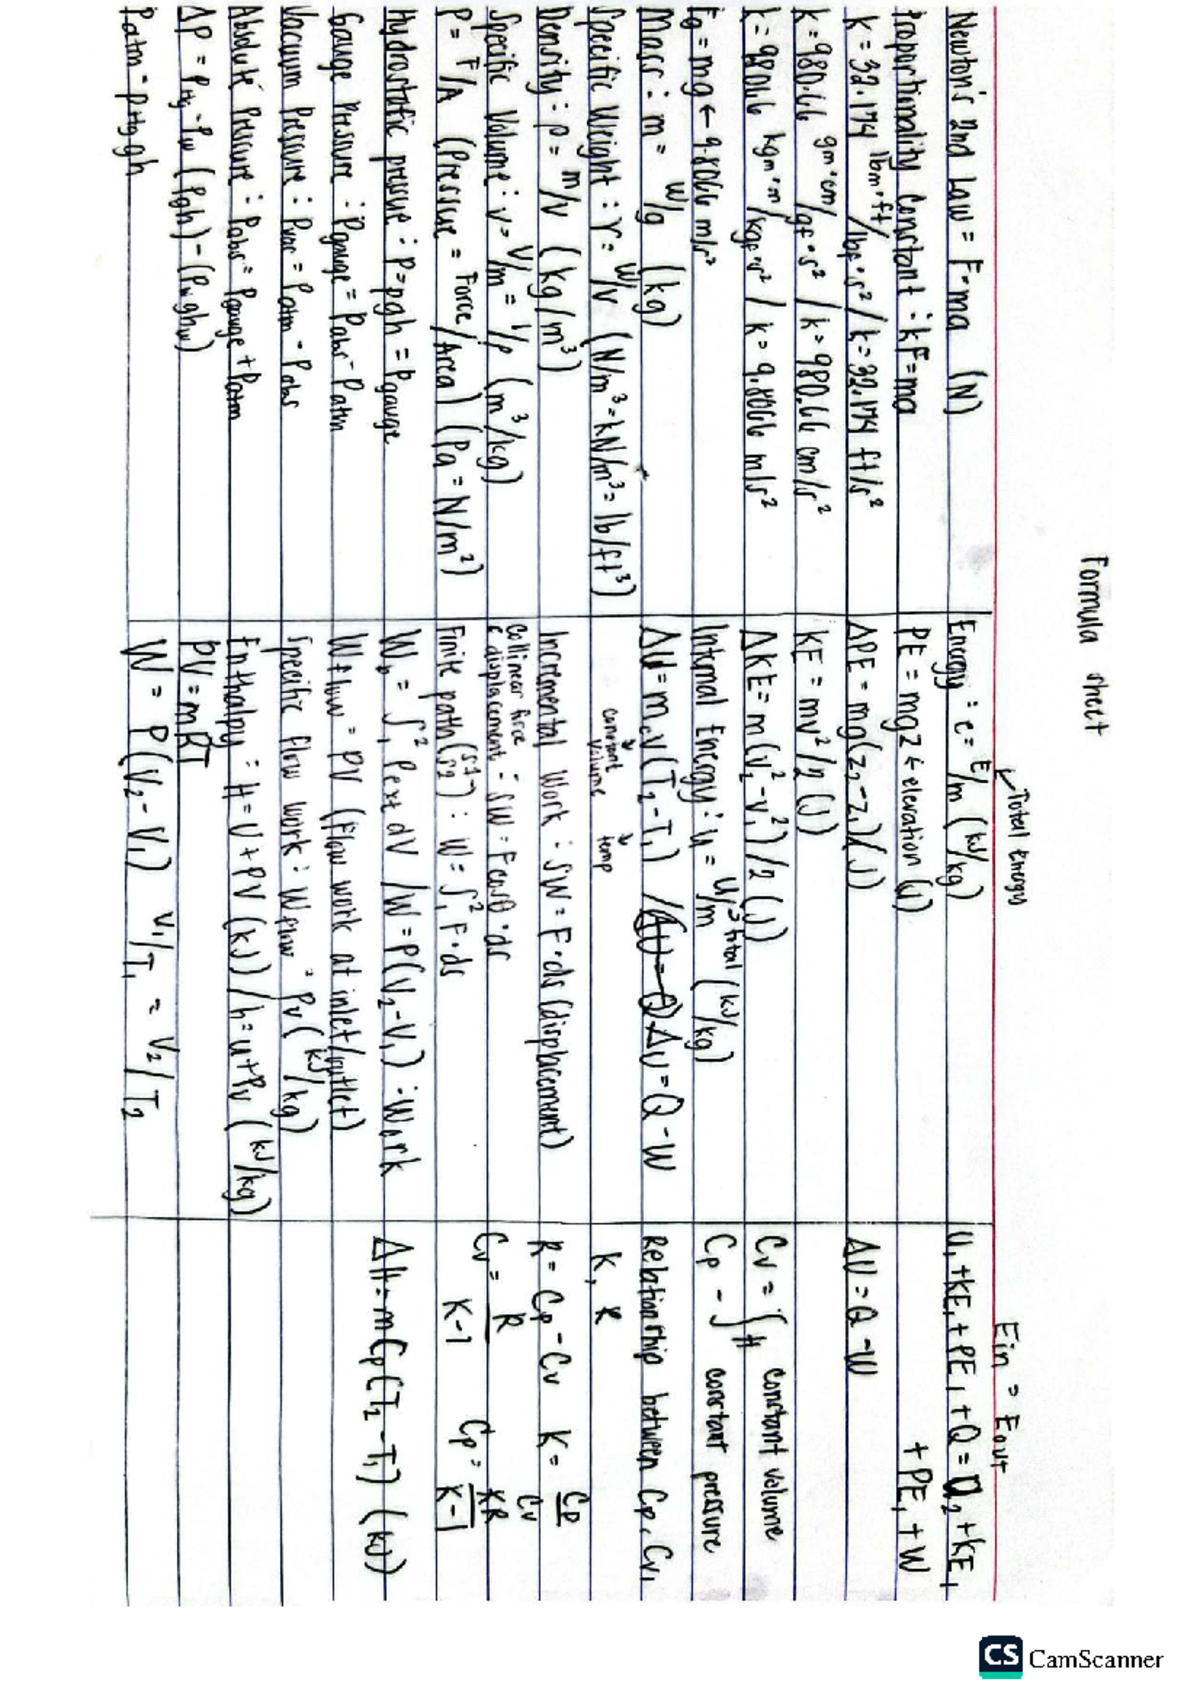 Formula sheet
Newton's 2nd Law = F=ma (N)
Proportionality Constant : kF=ma
k = 32.174 lbm·ft/lbf·s² / k=32.174 ft/s²
k=980.66 gm·cm/gf·s² / k=980.66 cm/s²
k=9.8066 kgm·m/kgf·s² / k=9.8066 m/s²
Fg=mg ← 9.8066 m/s²
Mass : m= W/g (kg)
Specific Weight : γ= W/V (N/m³=kN/m³=lb/ft³)
Density : ρ= m/V (kg/m³)
Specific Volume : v= V/m = 1/ρ (m³/kg)
P= F/A (Pressure = Force/Area) (Pa=N/m²)
Hydrostatic pressure : P=ρgh = Pgauge
Gauge Pressure : Pgauge = Pabs - Patm
Vacuum Pressure : Pvac = Patm - Pabs
Absolute Pressure : Pabs = Pgauge + Patm
ΔP = PHg - Pw (ρgh) - (ρw ghw)
Patm = ρHg gh
Total energy
Energy : e= E/m (kJ/kg)
PE = mgz ← elevation (J)
ΔPE = mg(z₂-z₁)(J)
KE = mv²/2 (J)
ΔKE = m(v₂²-v₁²)/2 (J)
Internal Energy : u = U/m → total (kJ/kg)
ΔU=mcv(T₂-T₁) / (ΔU=Q) ΔU=Q-W
constant volume temp
Incremental Work : δW = F·ds (displacement)
collinear force
& displacement : δW = Fcosθ·ds
Finite path (s1→s2) : W=∫₁² F·ds
Wb = ∫₁² Pext dV / W=P(V₂-V₁) : Work
Wflow = PV (flow work at inlet/outlet)
Specific flow work : Wflow = Pv (kJ/kg)
Enthalpy : H=U+PV (kJ) / h=u+Pv (kJ/kg)
PV=mRT
W = P(V₂-V₁) V₁/T₁ = V₂/T₂
Ein = Eout
U₁+KE₁+PE₁+Q = U₂+KE₁
+PE₁+W
ΔU=Q-W
Cv = ∫ constant volume
Cp - ∫ᴴ constant pressure
Relationship between Cp, Cv,
K, R
R= Cp-Cv K= Cp/Cv
Cv = R/K-1 Cp = KR/K-1
ΔH=mCp(T₂-T₁) (kJ)
CS CamScanner